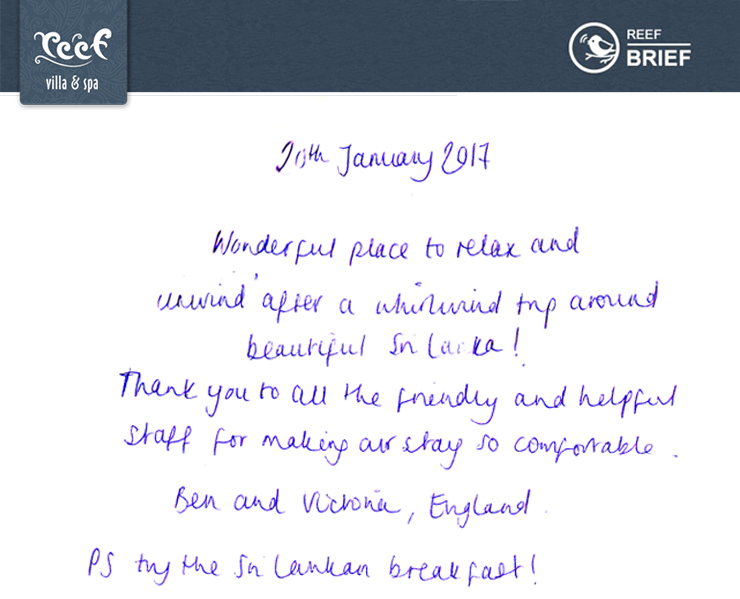 reef
villa & spa
REEF
BRIEF
20th January 2017
Wonderful place to relax and
unwind after a whirlwind trip around
beautiful Sri Lanka!
Thank you to all the friendly and helpful
staff for making our stay so comfortable.
Ben and Victoria, England.
PS try the Sri Lankan breakfast!